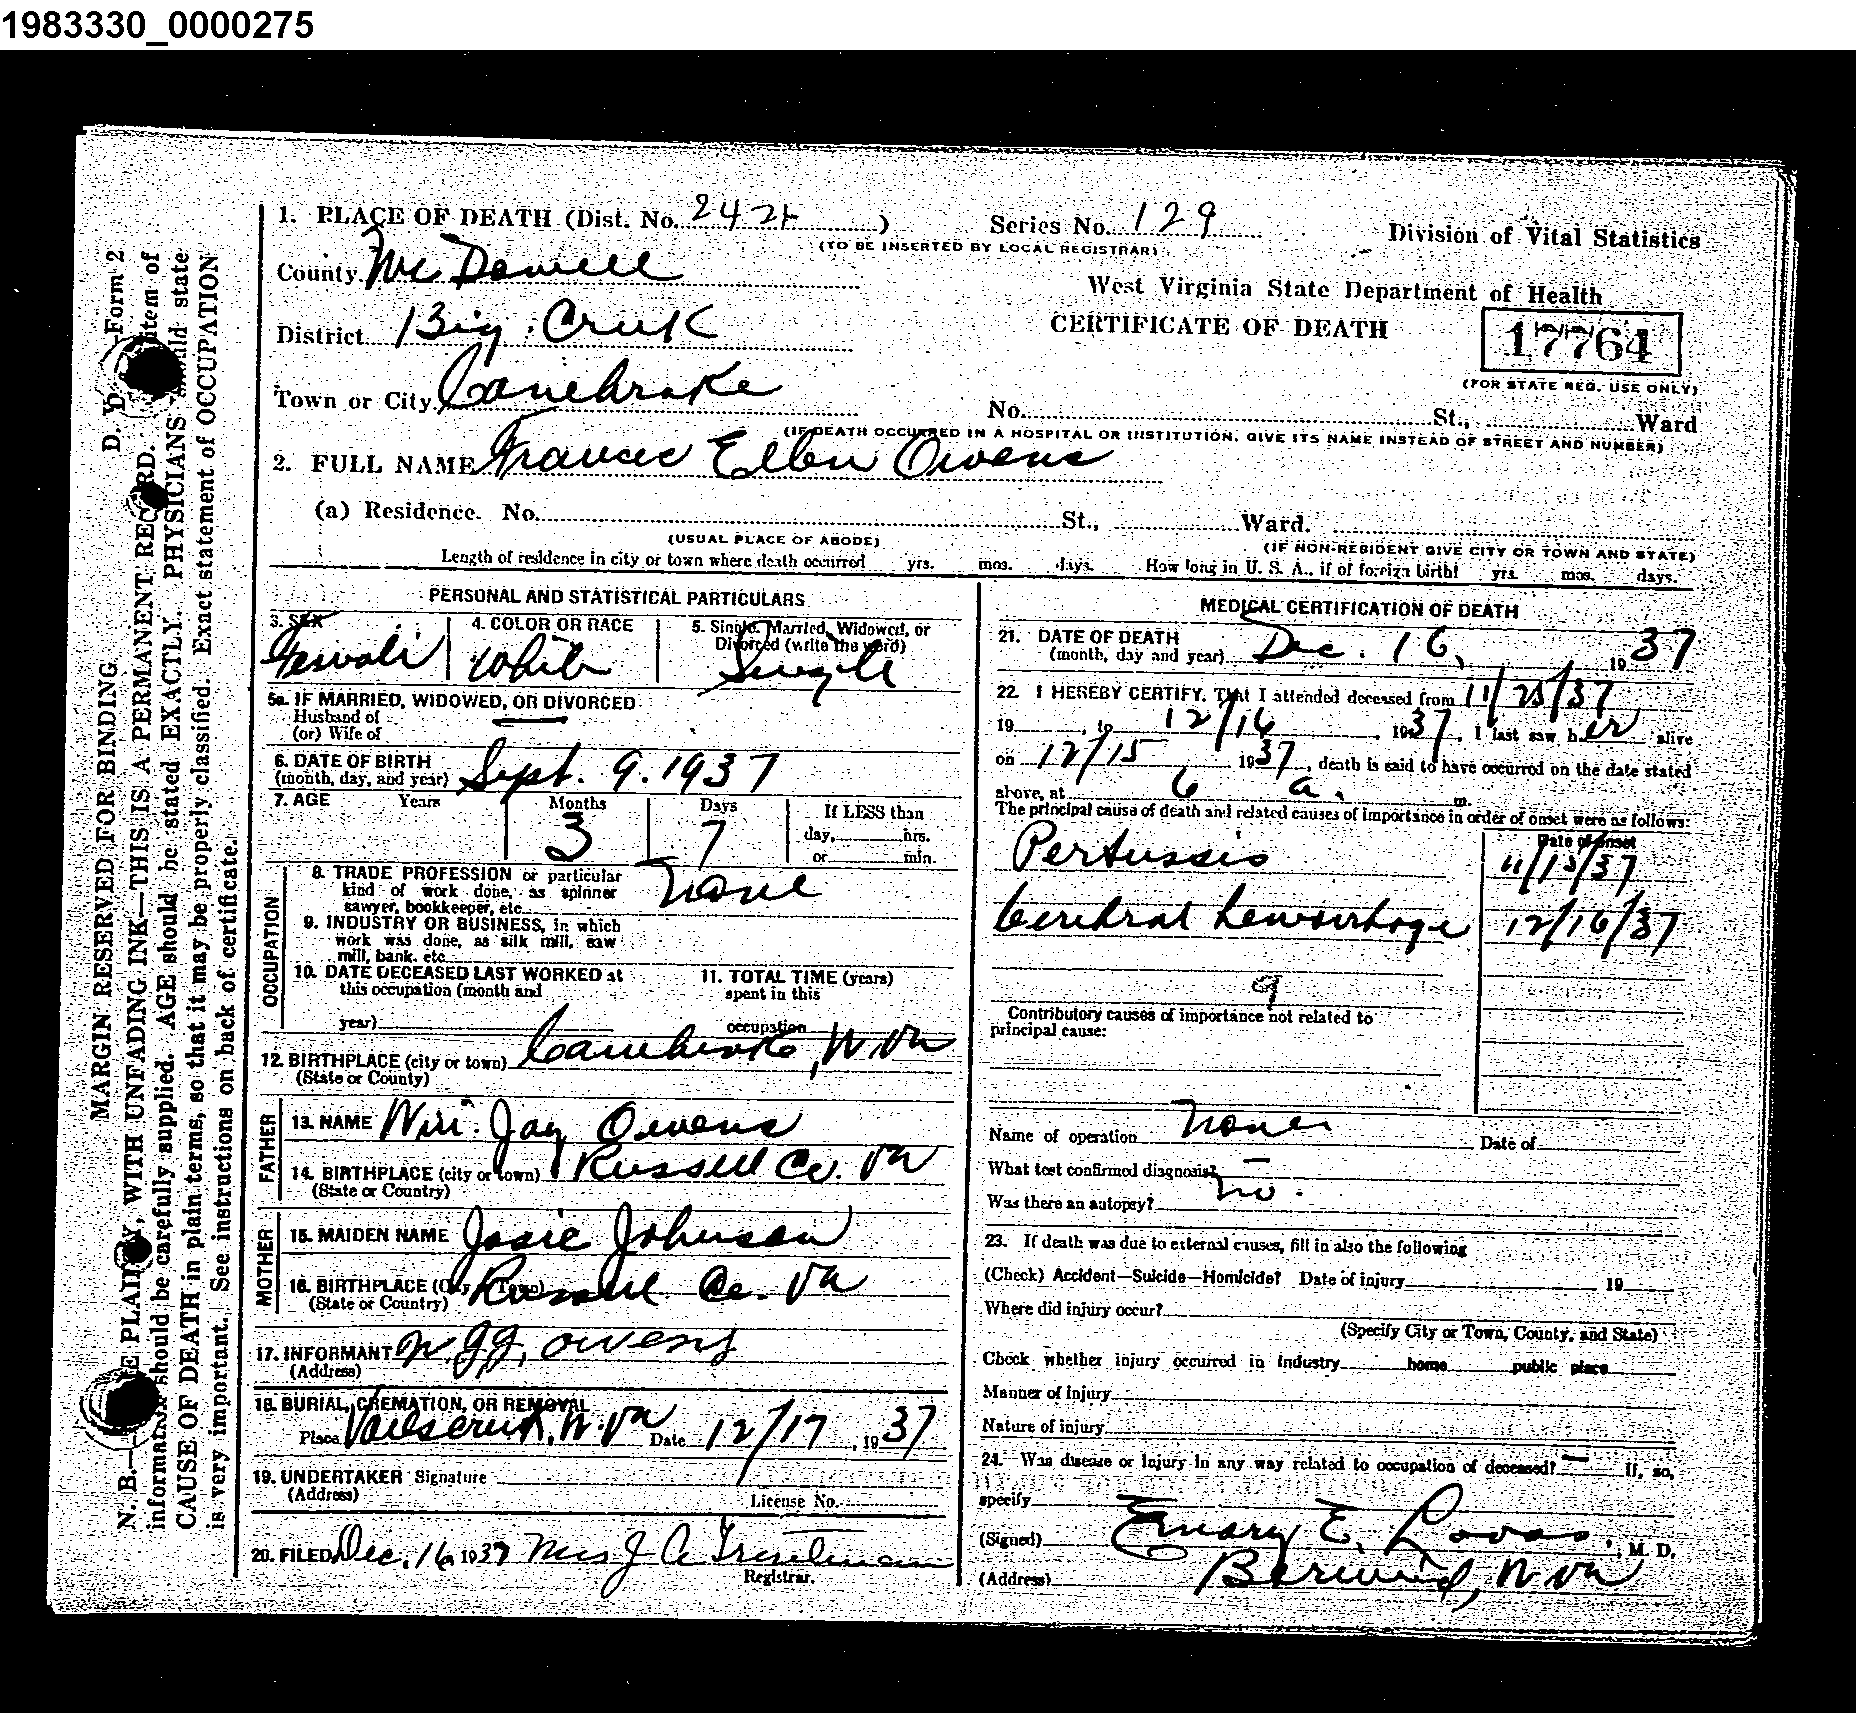 1983330_0000275
1. PLACE OF DEATH (Dist. No. 2424 )
Series No. 129
(TO BE INSERTED BY LOCAL REGISTRAR)
Division of Vital Statistics
County McDowell
West Virginia State Department of Health
CERTIFICATE OF DEATH
17764
(FOR STATE REG. USE ONLY)
District Big Creek
Town or City Canebrake
No. St., Ward
(IF DEATH OCCURRED IN A HOSPITAL OR INSTITUTION, GIVE ITS NAME INSTEAD OF STREET AND NUMBER)
2. FULL NAME Frances Ellen Owens
(a) Residence. No. St., Ward.
(USUAL PLACE OF ABODE)
(IF NON-RESIDENT GIVE CITY OR TOWN AND STATE)
Length of residence in city or town where death occurred yrs. mos. days. How long in U. S. A., if of foreign birth? yrs. mos. days.
PERSONAL AND STATISTICAL PARTICULARS
3. SEX
4. COLOR OR RACE
5. Single, Married, Widowed, or
Divorced (write the word)
Female White Single
5a. IF MARRIED, WIDOWED, OR DIVORCED
Husband of
(or) Wife of
6. DATE OF BIRTH
(month, day, and year) Sept. 9. 1937
7. AGE Years Months Days If LESS than
day, hrs.
or min.
3 7
OCCUPATION
8. TRADE PROFESSION or particular
kind of work done, as spinner
sawyer, bookkeeper, etc. none
9. INDUSTRY OR BUSINESS, in which
work was done, as silk mill, saw
mill, bank, etc.
10. DATE DECEASED LAST WORKED at
this occupation (month and
year)
11. TOTAL TIME (years)
spent in this
occupation
12. BIRTHPLACE (city or town) Canebrake, W. Va
(State or County)
FATHER
13. NAME Wm. Jay Owens
14. BIRTHPLACE (city or town) Russell Co. Va
(State or Country)
MOTHER
15. MAIDEN NAME Josie Johnson
16. BIRTHPLACE (City or Town) Russell Co. Va
(State or Country)
17. INFORMANT Owens
(Address)
18. BURIAL, CREMATION, OR REMOVAL
Place W. Va Date 12/17, 1937
19. UNDERTAKER Signature
(Address)
License No.
20. FILED Dec. 16 1937 Mrs J
Registrar.
MEDICAL CERTIFICATION OF DEATH
21. DATE OF DEATH
(month, day and year) Dec. 16, 1937
22. I HEREBY CERTIFY, That I attended deceased from 11/25/37
19 , to 12/16 , 1937, I last saw her alive
on 12/15 1937, death is said to have occurred on the date stated
above, at 6 a. m.
The principal cause of death and related causes of importance in order of onset were as follows:
Date of onset
Pertussis 11/13/37
Cerebral hemorrhage 12/16/37
9
Contributory causes of importance not related to
principal cause:
Name of operation none Date of
What test confirmed diagnosis? –
Was there an autopsy? no.
23. If death was due to external causes, fill in also the following
(Check) Accident—Suicide—Homicide? Date of injury 19
Where did injury occur?
(Specify City or Town, County, and State)
Check whether injury occurred in industry home public place
Manner of injury
Nature of injury
24. Was disease or injury in any way related to occupation of deceased? — If, so,
specify
(Signed) Emory E. Lovas, M. D.
(Address) Berwind, W. Va
D. D. Form 2
MARGIN RESERVED FOR BINDING
N. B.—WRITE PLAINLY, WITH UNFADING INK—THIS IS A PERMANENT RECORD. item of
information should be carefully supplied. AGE should be stated EXACTLY. PHYSICIANS should state
CAUSE OF DEATH in plain terms, so that it may be properly classified. Exact statement of OCCUPATION
is very important. See instructions on back of certificate.